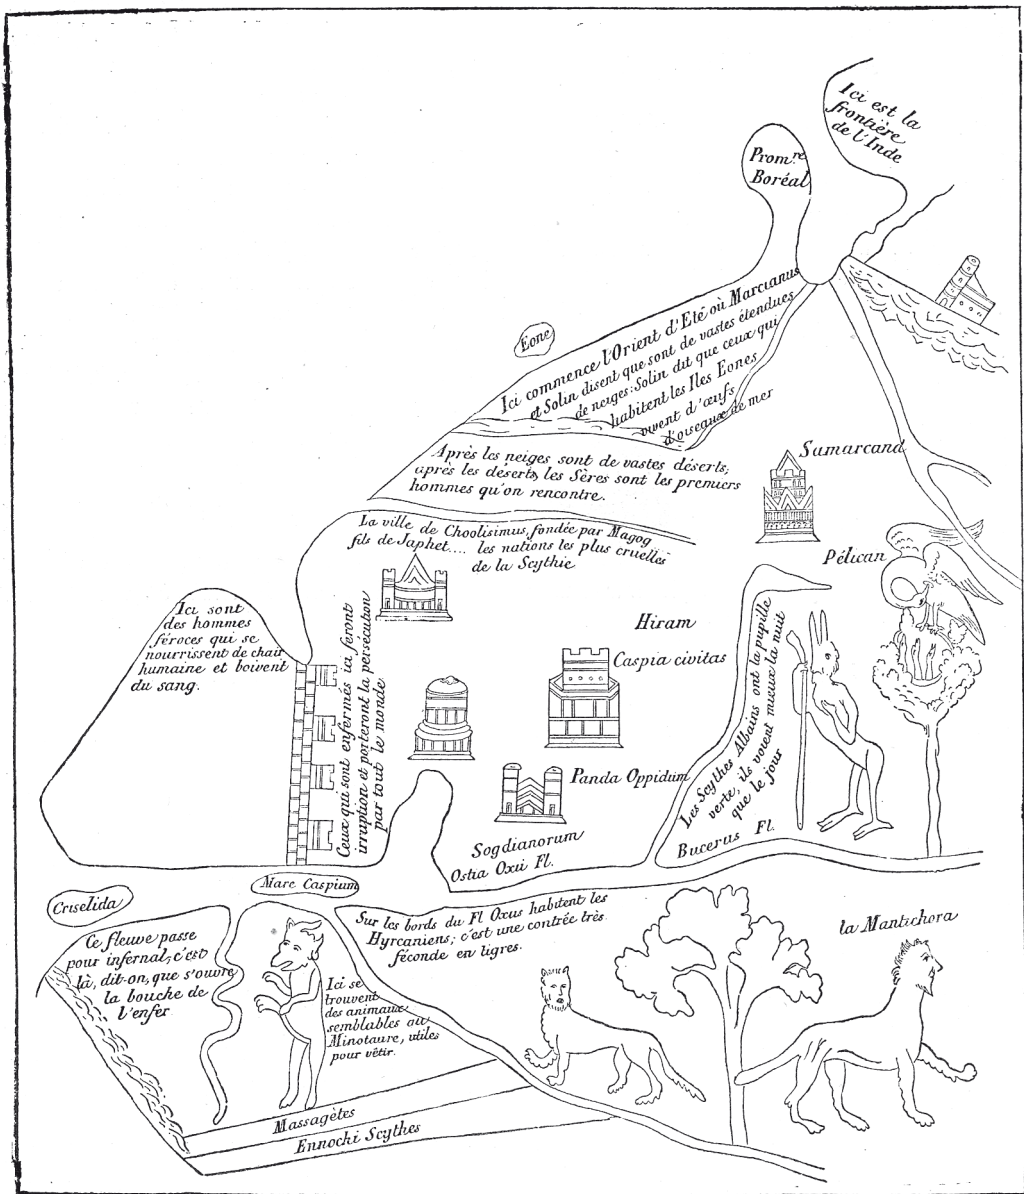 Ici est la
frontière
de l'Inde
Prom.re
Boréal
Eone
Ici commence l'Orient d'Eté où Marcianus
et Solin disent que sont de vastes étendues
de neiges: Solin dit que ceux qui
habitent les Iles Eones
vivent d'œufs
d'oiseaux de mer
Après les neiges sont de vastes déserts;
après les déserts, les Sères sont les premiers
hommes qu'on rencontre.
Samarcand
La ville de Choolisimus, fondée par Magog
fils de Japhet.... les nations les plus cruelles
de la Scythie
Pélican
Ici sont
des hommes
féroces qui se
nourrissent de chair
humaine et boivent
du sang.
Ceux qui sont enfermés ici feront
irruption et porteront la persécution
par tout le monde
Hiram
Caspia civitas
Panda Oppidum
Les Scythes Albains ont la pupille
verte, ils voient mieux la nuit
que le jour
Sogdianorum
Ostia Oxii Fl.
Bucerus Fl.
Mare Caspium
Criselida
Ce fleuve passe
pour infernal, c'est
là, dit-on, que s'ouvre
la bouche de
l'enfer
Ici se
trouvent
des animaux
semblables au
Minotaure, utiles
pour vêtir.
Sur les bords du Fl Oxus habitent les
Hyrcaniens; c'est une contrée très
féconde en tigres.
la Mantichora
Massagètes
Ennochi Scythes